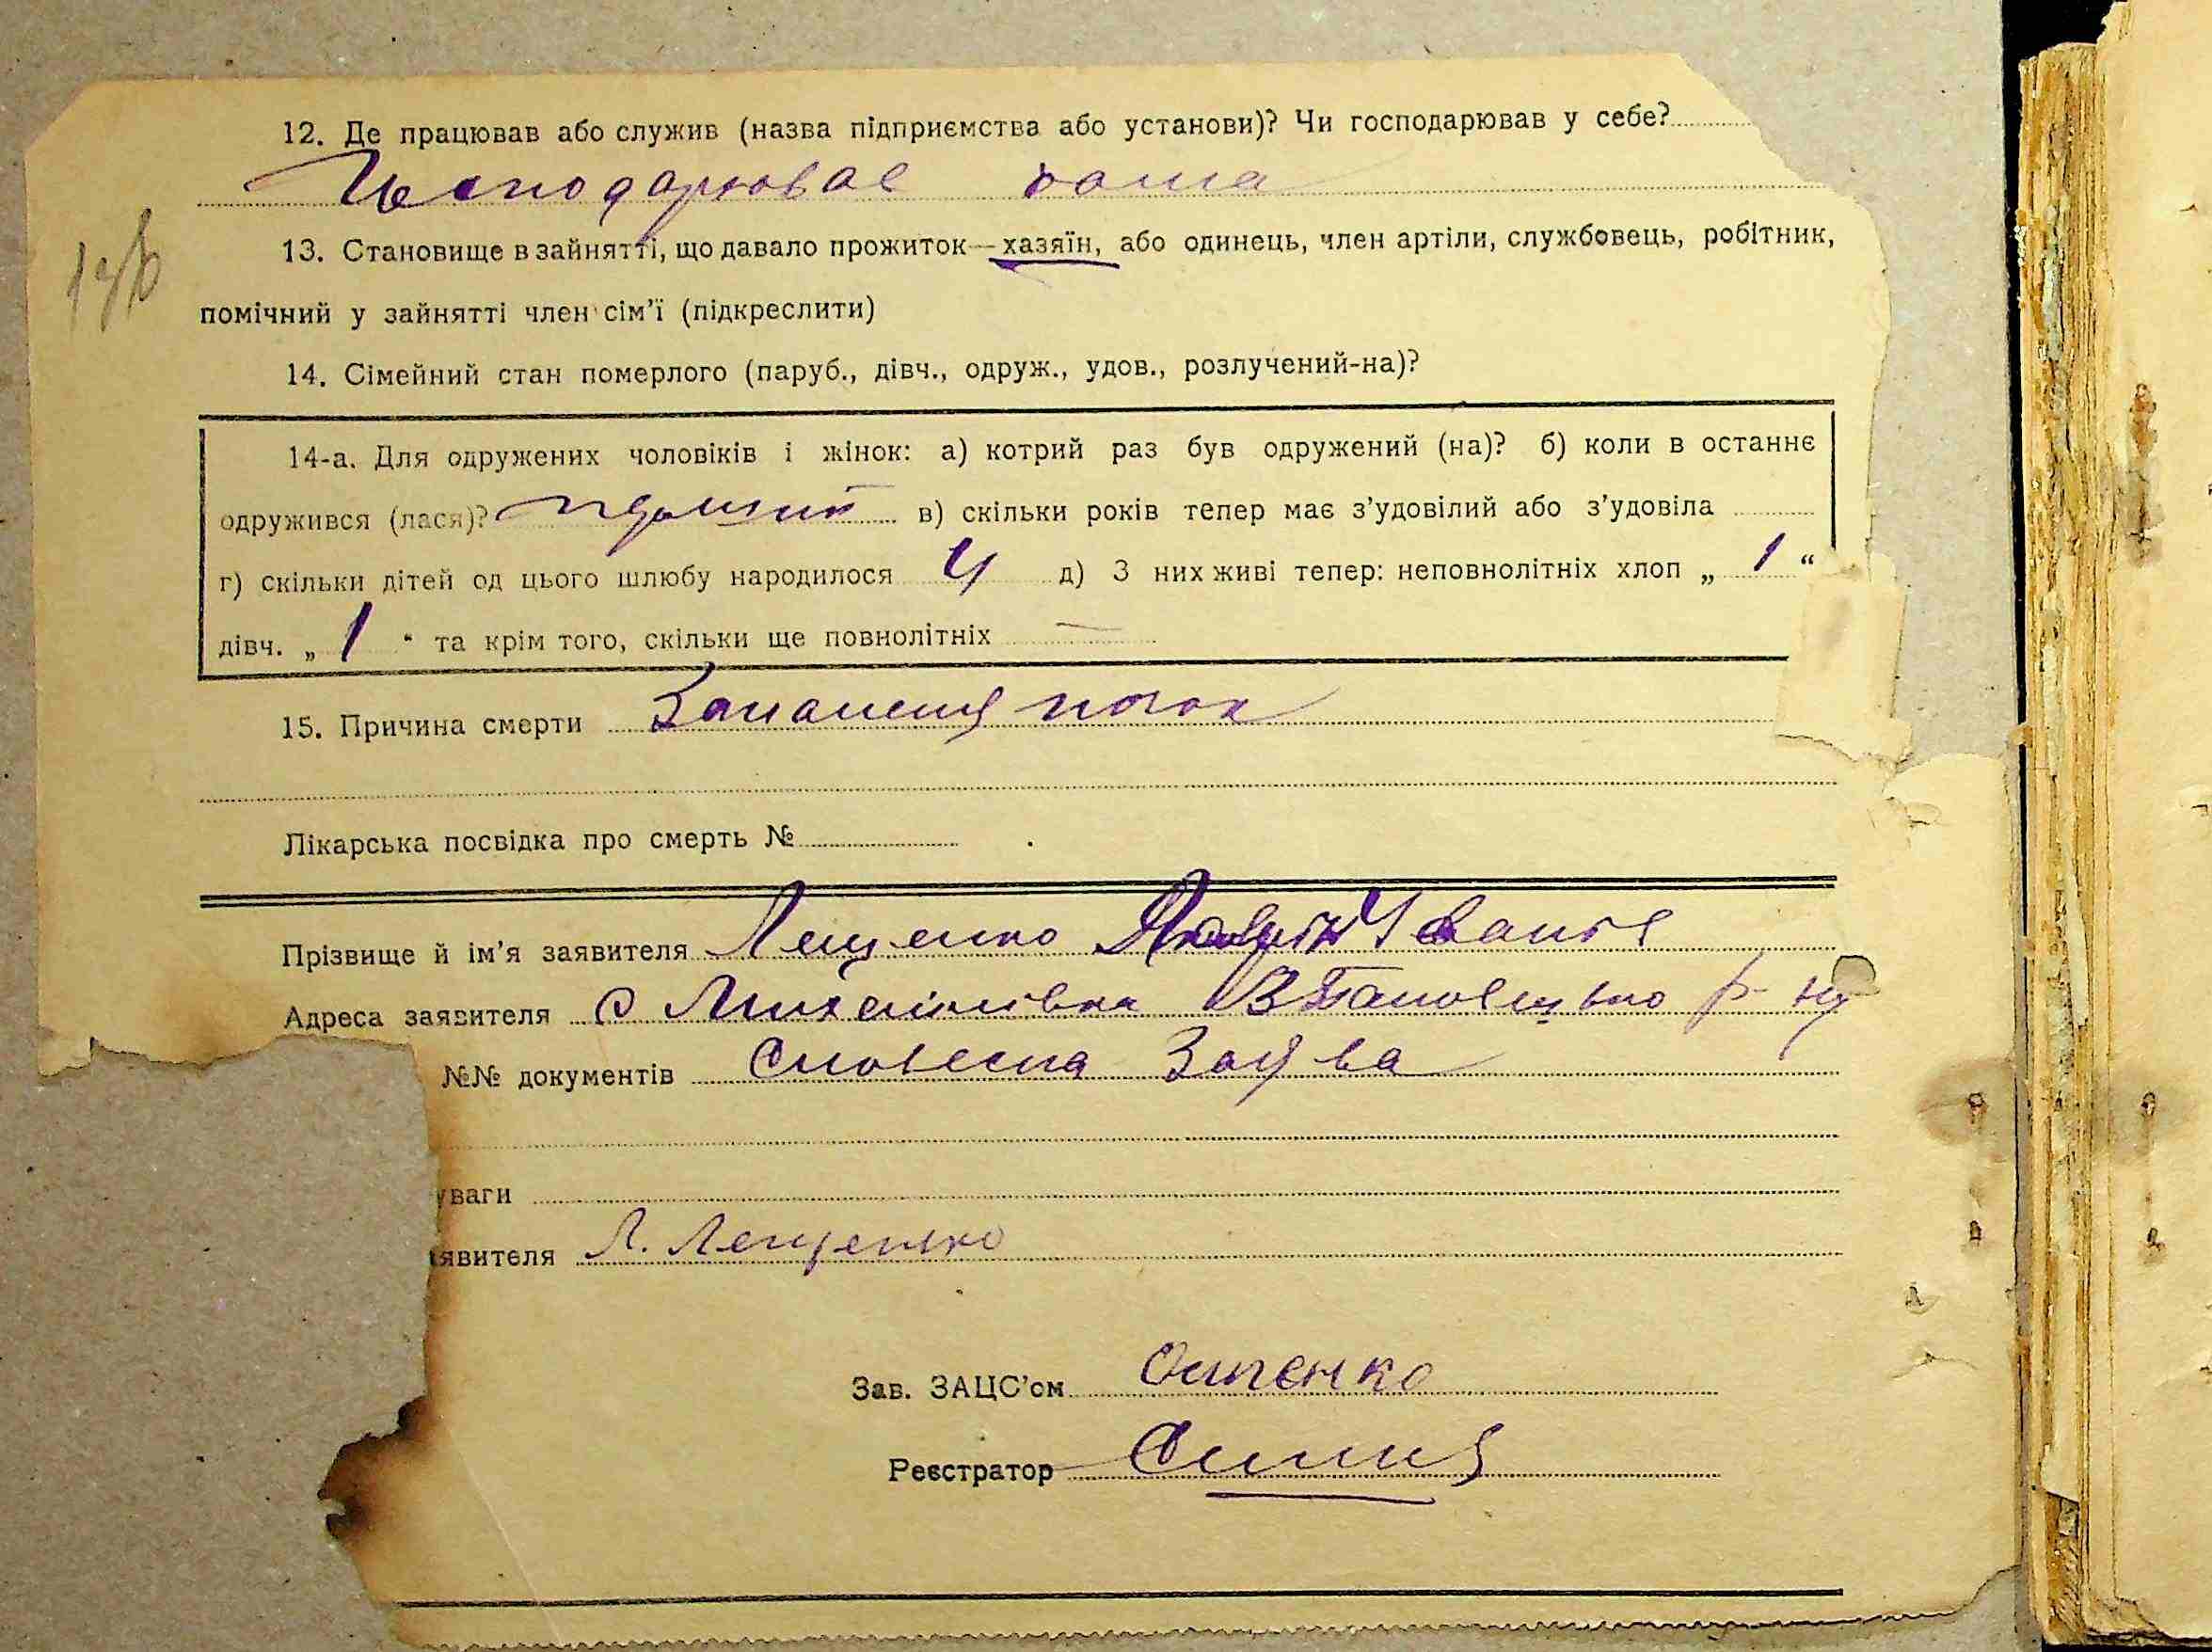 12. Де працював або служив (назва підприємства або установи)? Чи господарював у себе?
Господарював дома
13. Становище в зайнятті, що давало прожиток—хазяїн, або одинець, член артіли, службовець, робітник,
помічний у зайнятті член сім'ї (підкреслити)
14. Сімейний стан померлого (паруб., дівч., одруж., удов., розлучений-на)?
14-а. Для одружених чоловіків і жінок: а) котрий раз був одружений (на)? б) коли в останнє
одружився (лася)? в) скільки років тепер має з'удовілий або з'удовіла
г) скільки дітей од цього шлюбу народилося 4 д) З них живі тепер: неповнолітніх хлоп „ 1 “
дівч. „ 1 “ та крім того, скільки ще повнолітніх —
15. Причина смерти Запаленя
Лікарська посвідка про смерть №
Прізвище й ім'я заявителя Лещенко
Адреса заявителя с Михайлівка р-ну
№№ документів Словесна Заява
уваги
явителя Л. Лещенко
Зав. ЗАЦС'ом
Реєстратор